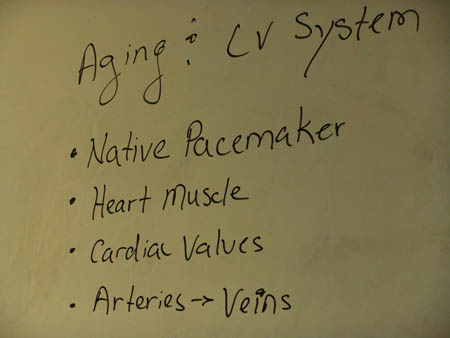 Aging & CV System
• Native Pacemaker
• Heart Muscle
• Cardiac Valves
• Arteries → Veins